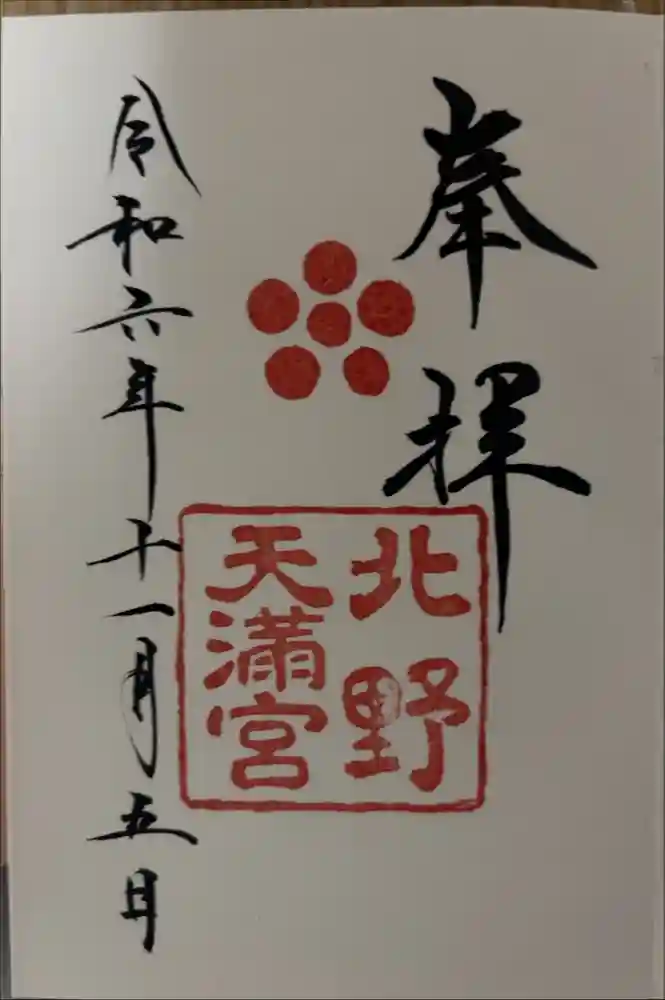 奉拝
北野
天満宮
令和六年十一月五日